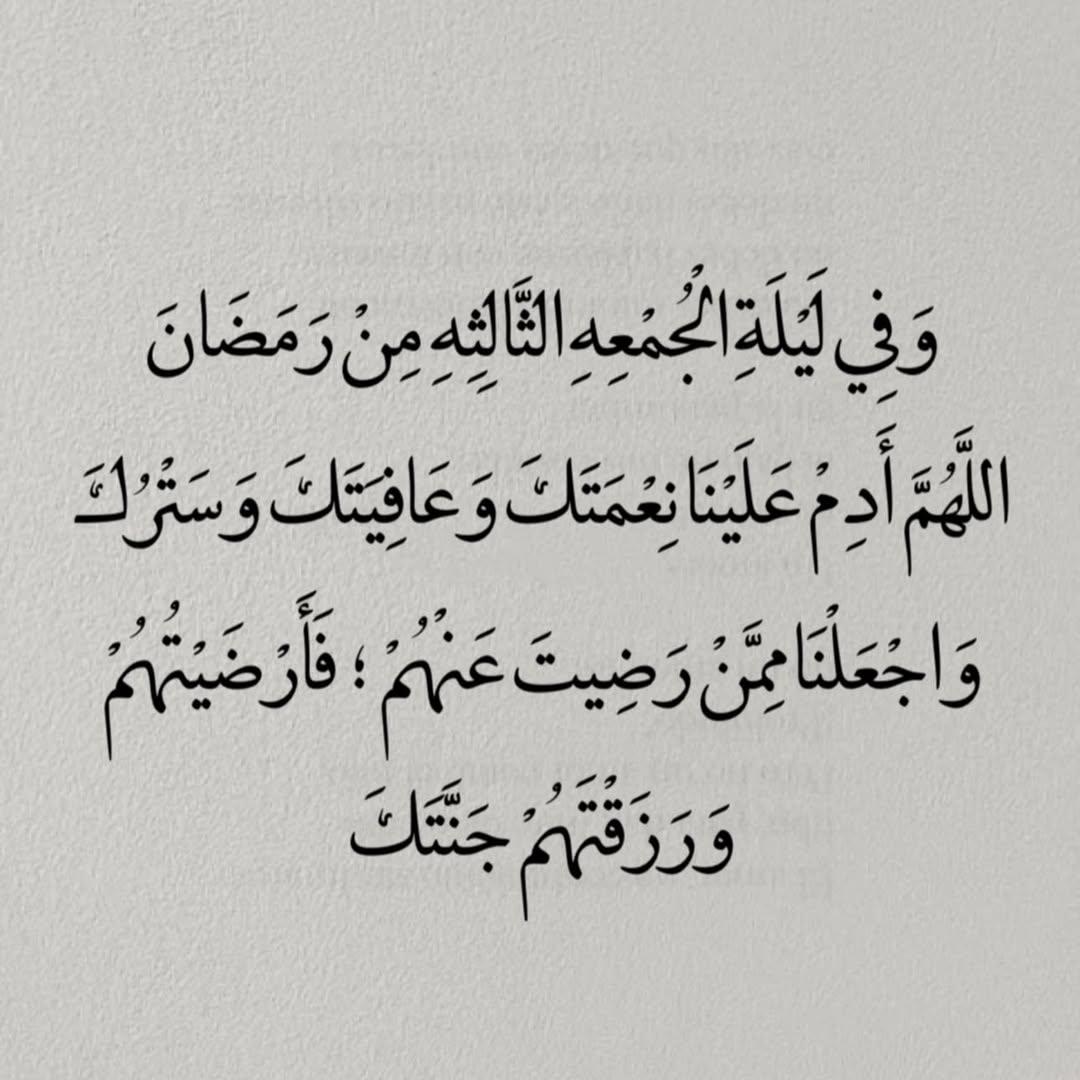 وَفِي لَيْلَةِ الْجُمْعِهِ الثَّالِثِهِ مِنْ رَمَضَانَ
اللَّهُمَّ أَدِمْ عَلَيْنَا نِعْمَتَكَ وَعَافِيَتَكَ وَسَتْرُكَ
وَاجْعَلْنَا مِمَّنْ رَضِيتَ عَنْهُمْ ؛ فَأَرْضَيْتُهُمْ
وَرَزَقْتَهُمْ جَنَّتَكَ